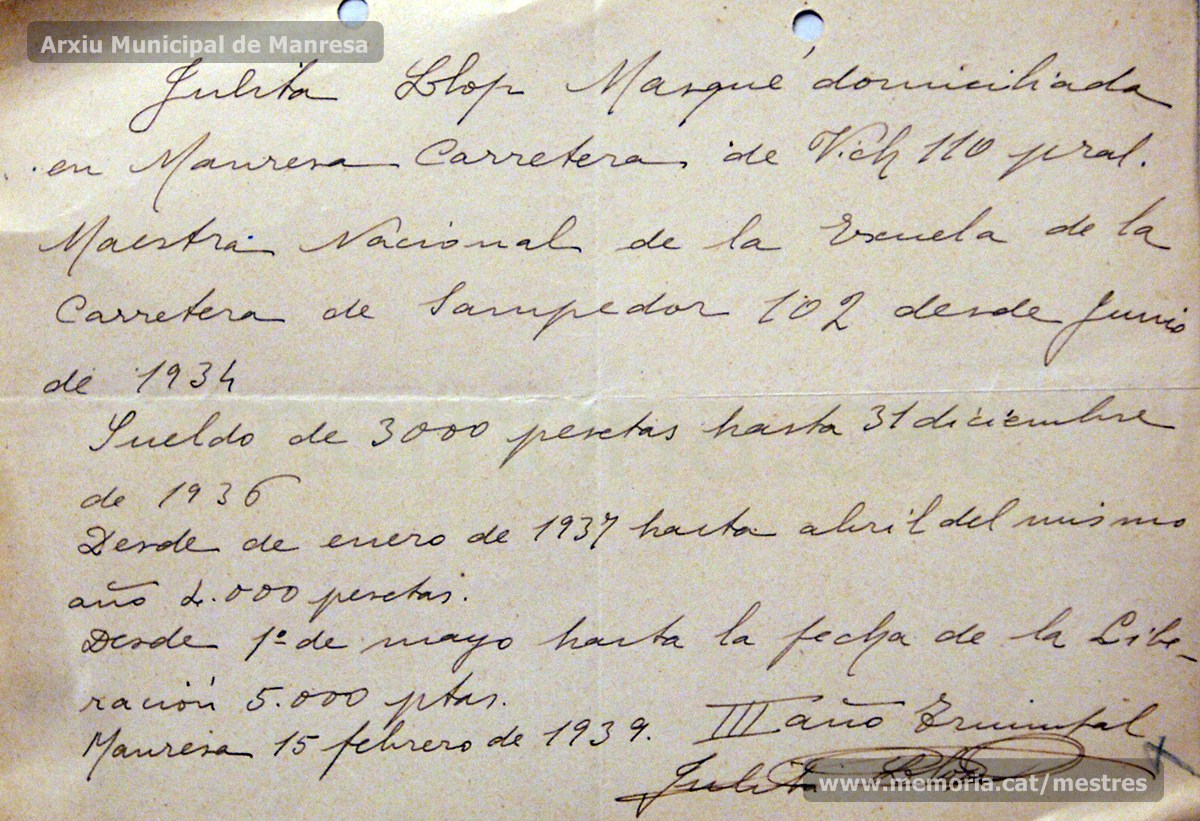 Arxiu Municipal de Manresa
Julita Llop Masqué domiciliada
en Manresa Carretera de Vich 110 pral.
Maestra Nacional de la Escuela de la
Carretera de Sampedor 102 desde Junio
de 1934
Sueldo de 3000 pesetas hasta 31 diciembre
de 1936
Desde de enero de 1937 hasta abril del mismo
año 4.000 pesetas.
Desde 1º de mayo hasta la fecha de la Libe-
ración 5.000 ptas.
Manresa 15 febrero de 1939. III año Triunfal
Julita Llop
www.memoria.cat/mestres